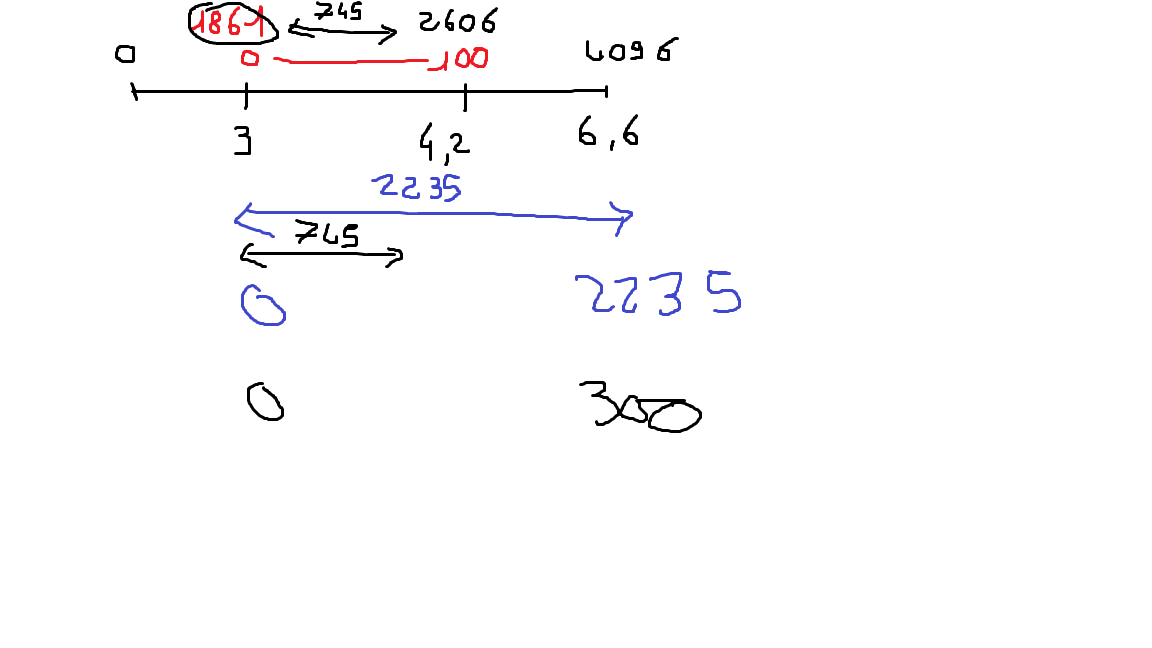 1861 745 2606
0 0 100 4096
3 4,2 6,6
2235
745
0 2235
0 300